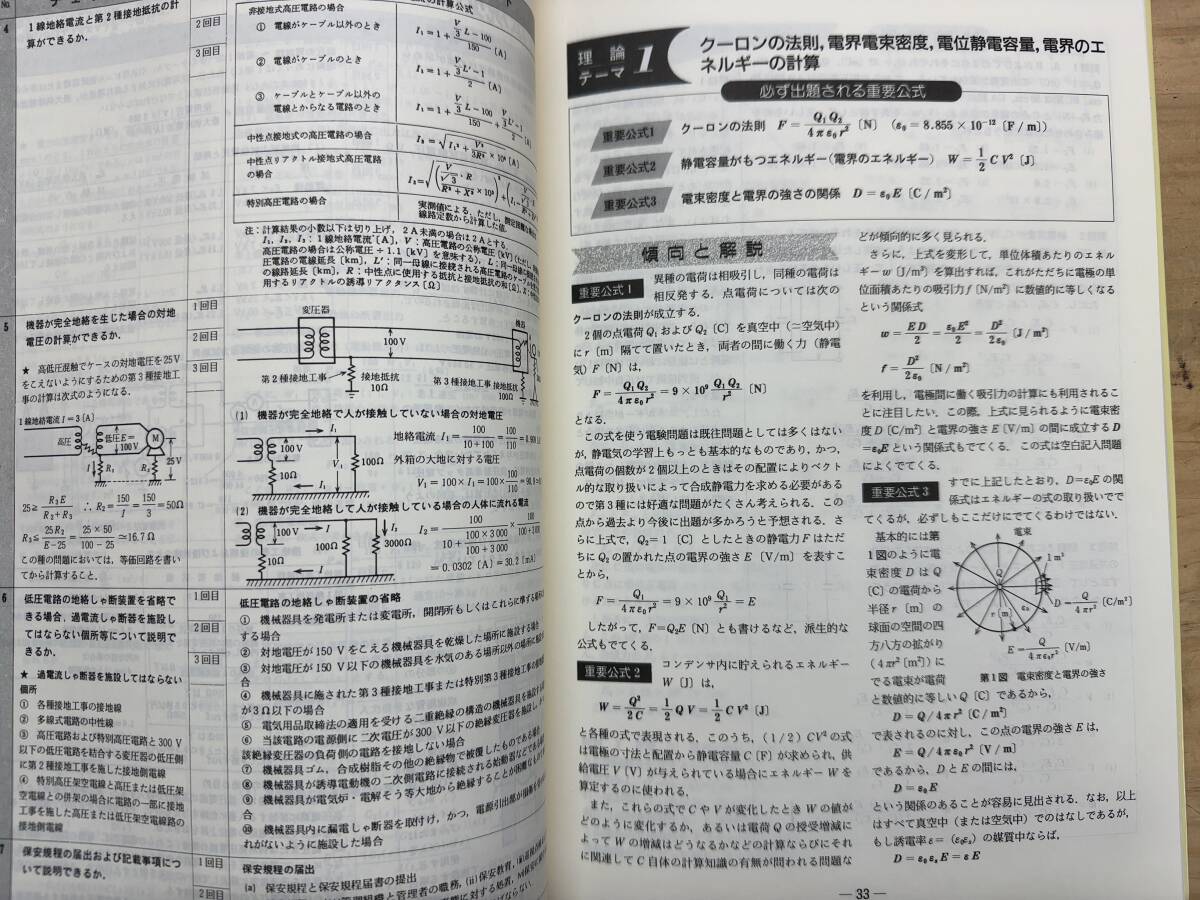 No.
4
1線地絡電流と第2種接地抵抗の計
算ができるか.
2回目
3回目
非接地式高圧電路の場合
① 電線がケーブル以外のとき
② 電線がケーブルのとき
③ ケーブルとケーブル以外の
電線とからなる電路のとき
中性点接地式の高圧電路の場合
中性点リアクトル接地式高圧電路
の場合
特別高圧電路の場合
注：計算結果の小数以下は切り上げ，2A未満の場合は2Aとする.
5
機器が完全地絡を生じた場合の対地
電圧の計算ができるか.
★ 高低圧混触でケースの対地電圧を25V
をこえないようにするための第3種接地工
事の計算は次式のようになる.
1線地絡電流 I=3[A]
高圧
低圧E=
100V
M
25V
I R₁
R₃
25≧ R₃E/(R₂+R₃) ∴ R₂=150/I=150/3=50Ω
R₃≦ 25R₂/(E-25) = 25×50/(100-25) ≃16.7Ω
この種の問題においては，等価回路を書い
てから計算すること.
1回目
2回目
3回目
変圧器
機器
100V
第2種接地工事
接地抵抗
10Ω
第3種接地工事 接地抵抗
100Ω
(1) 機器が完全地絡で人が接触していない場合の対地電圧
100V
10Ω
I₁
V₁
100Ω
外箱の大地に対する電圧
(2) 機器が完全地絡して人が接触している場合の人体に流れる電流
100V
I
10Ω
100Ω
3000Ω
=0.0302[A]=30.2[mA]
6
低圧電路の地絡しゃ断装置を省略で
きる場合，過電流しゃ断器を施設し
てはならない個所等について説明で
きるか.
★ 過電流しゃ断器を施設してはならない
個所
① 各種接地工事の接地線
② 多線式電路の中性線
③ 高圧電路および特別高圧電路と300V
以下の低圧電路を結合する変圧器の低圧側
に第2種接地工事を施した接地側電線
④ 特別高圧架空電線と高圧または低圧架
空電線との併架の場合に電路の一部に接地
工事を施した高圧または低圧架空電線路の
接地側電線
1回目
2回目
3回目
低圧電路の地絡しゃ断装置の省略
① 機械器具を発電所または変電所，開閉所もしくはこれらに準ずる
する場合
② 対地電圧が150Vをこえる機械器具を乾燥した場所に施設する場合
③ 対地電圧が150V以下の機械器具を水気のある場所以外の場所に
合
④ 機械器具に施された第3種接地工事または特別第3種接地工事の
が3Ω以下の場合
⑤ 電気用品取締法の適用を受ける二重絶縁の構造の機械器具を
⑥ 当該電路の電源側に二次電圧が300V以下の絶縁変圧器を施設し
該絶縁変圧器の負荷側の電路を接地しない場合
⑦ 機械器具ゴム，合成樹脂その他の絶縁物で被覆したものである場合
⑧ 機械器具が誘導電動機の二次側電路に接続される
⑨ 機械器具が電気炉・電解そう等大地から絶縁することが
合
⑩ 機械器具内に漏電しゃ断器を取付け，かつ，電源引出部が
れがないように施設した場合
7
保安規程の届出および記載事項につ
いて説明できるか.
1回目
2回目
保安規程の届出
(a) 保安規程と保安規程届書の提出
理論
テーマ 1
クーロンの法則，電界電束密度，電位静電容量，電界のエ
ネルギーの計算
必ず出題される重要公式
重要公式1 クーロンの法則 F=Q₁Q₂/4πε₀r² [N] (ε₀=8.855×10⁻¹²[F/m])
重要公式2 静電容量がもつエネルギー(電界のエネルギー) W=1/2 CV² [J]
重要公式3 電束密度と電界の強さの関係 D=ε₀E [C/m²]
傾向と解説
重要公式1 異種の電荷は相吸引し，同種の電荷は
相反発する．点電荷については次の
クーロンの法則が成立する.
2個の点電荷Q₁およびQ₂[C]を真空中(≃空気中)
にr[m]隔てて置いたとき，両者の間に働く力(静電
気)F[N]は,
F=Q₁Q₂/4πε₀r²=9×10⁹ Q₁Q₂/r² [N]
となる.
この式を使う電験問題は既往問題としては多くはない
が，静電気の学習上もっとも基本的なものであり，かつ，
点電荷の個数が2個以上のときはその配置によりベクト
ル的な取り扱いによって合成静電力を求める必要がある
ので第3種には好適な問題がたくさん考えられる．この
点から過去より今後に出題が多かろうと予想される．さ
らに上式で，Q₂=1[C]としたときの静電力Fはただ
ちにQ₂の置かれた点の電界の強さE[V/m]を表すこ
とから,
F=Q₁/4πε₀r²=9×10⁹ Q₁/r²=E
したがって，F=Q₂E[N]とも書けるなど，派生的な
公式もでてくる.
重要公式2 コンデンサ内に貯えられるエネルギー
W[J]は,
W=Q²/2C=1/2 QV=1/2 CV² [J]
と各種の式で表現される．このうち，(1/2)CV²の式
は電極の寸法と配置から静電容量C[F]が求められ，供
給電圧V[V]が与えられている場合にエネルギーWを
算定するのに使われる.
また，これらの式でCやVが変化したときWの値が
どのように変化するか，あるいは電荷Qの授受増減に
よってWの増減はどうなるかなどの計算ならびにそれ
に関連してC自体の計算知識の有無が問われる問題な
どが傾向的に多く見られる.
さらに，上式を変形して，単位体積あたりのエネル
ギーw[J/m³]を算出すれば，これがただちに電極の単
位面積あたりの吸引力f[N/m²]に数値的に等しくなる
という関係式
w=ED/2=ε₀E²/2=D²/2ε₀ [J/m³]
f=D²/2ε₀ [N/m²]
を利用し，電極間に働く吸引力の計算にも利用されるこ
とに注目したい．この際，上式に見られるように電束密
度D[C/m²]と電界の強さE[V/m]の間に成立するD
=ε₀Eという関係式もでてくる．この式は空白記入問題
によくでてくる.
重要公式3 すでに上記したとおり，D=ε₀Eの関
係式はエネルギーの式の取り扱いでで
てくるが，必ずしもここだけにでてくるわけではない.
基本的には第
1図のように電
束密度DはQ
[C]の電荷から
半径r[m]の
球面の空間の四
方八方の拡がり
(4πr²[m²])に
でる電束が電荷
電束
1m²
Q
r[m]
ε₀
D=Q/4πr² [C/m²]
E=Q/4πε₀r² [V/m]
第1図 電束密度と電界の強さ
と数値的に等しいQ[C]であるから,
D=Q/4πr² [C/m²]
で表されるのに対し，この点の電界の強さEは,
E=Q/4πε₀r² [V/m]
であるから，DとEの間には,
D=ε₀E
という関係のあることが容易に見出される．なお，以上
はすべて真空中(または空気中)でのはなしであるが,
もし誘電率ε=(ε₀εₛ)の媒質中ならば,
D=ε₀εₛE=εE
— 33 —